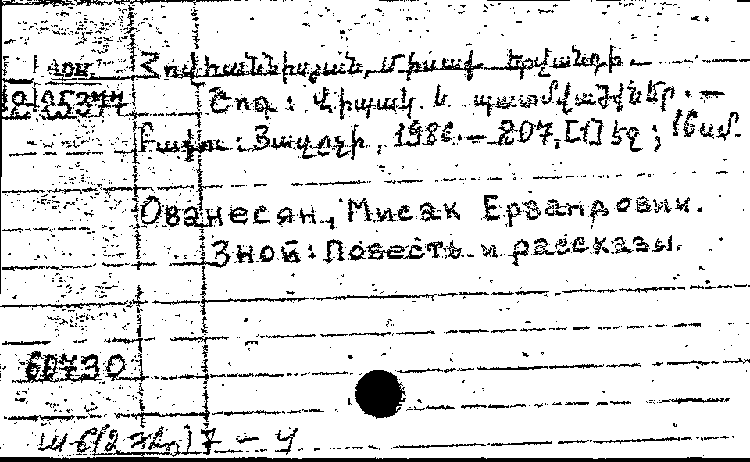 Հովհաննիսյան, Միսակ Երվանդի.
95377 Շոգ: Վիպակ. և պատմվածքներ. —
Բաքու: Յազըչի, 1986. — 207, [1] էջ; 16 սմ.
Ованесян, Мисак Ервандович.
Зной: Повесть и рассказы.
60730